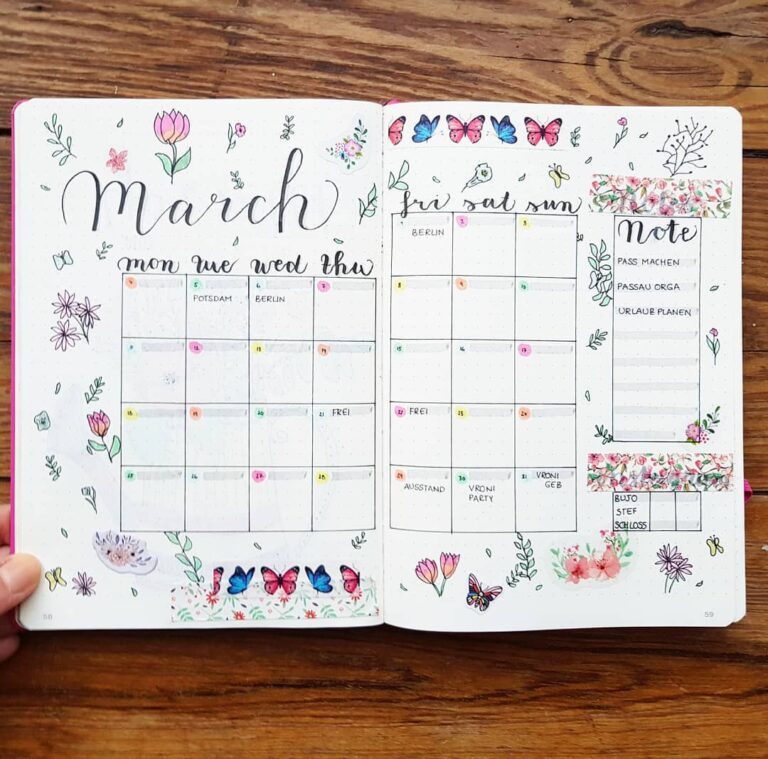 March
mon tue wed thu
4 5 6 7
POTSDAM BERLIN
11 12 13 14
18 19 20 21 FREI
25 26 27 28
50
fri sat sun
1 2 3
BERLIN
8 9 10
15 16 17
22 FREI 23 24
29 30 31
AUSSTAND
VRONI
PARTY
VRONI
GEB
Note
PASS MACHEN
PASSAU ORGA
URLAUB PLANEN
BUJO
STEF
SCHLOSS
59